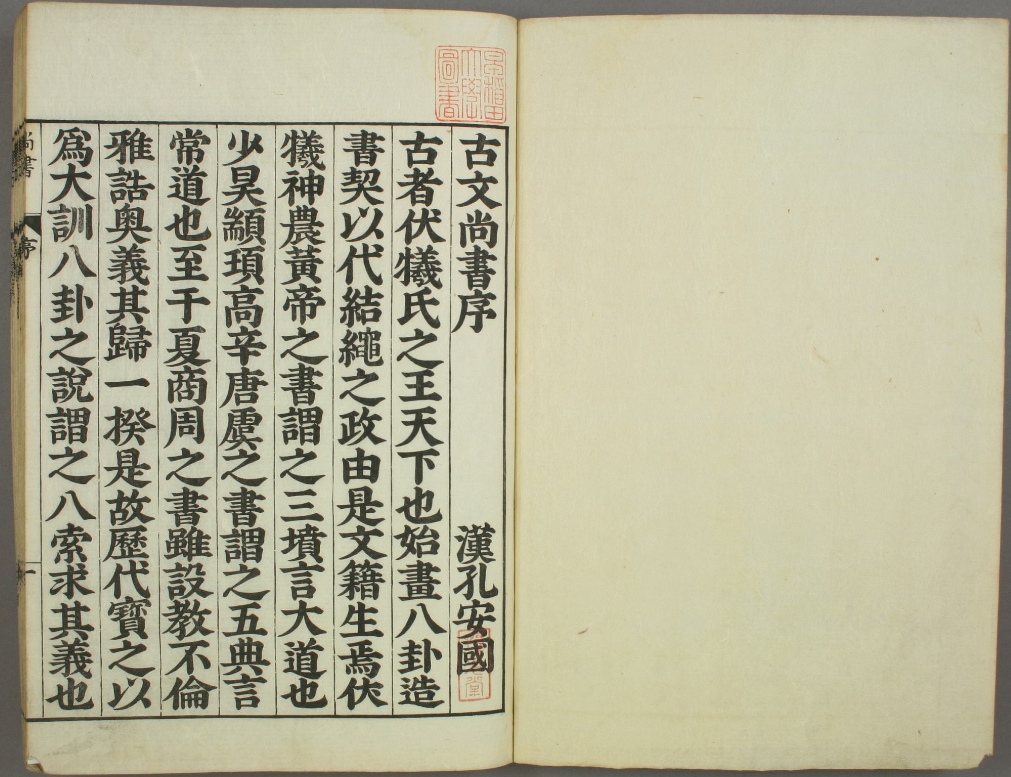 古文尚書序　漢孔安國
古者伏犧氏之王天下也始畫八卦造
書契以代結繩之政由是文籍生焉伏
犧神農黃帝之書謂之三墳言大道也
少昊顓頊高辛唐虞之書謂之五典言
常道也至于夏商周之書雖設教不倫
雅誥奧義其歸一揆是故歷代寶之以
爲大訓八卦之說謂之八索求其義也
尚書
序
一
早稲田
大學
圖書
堂